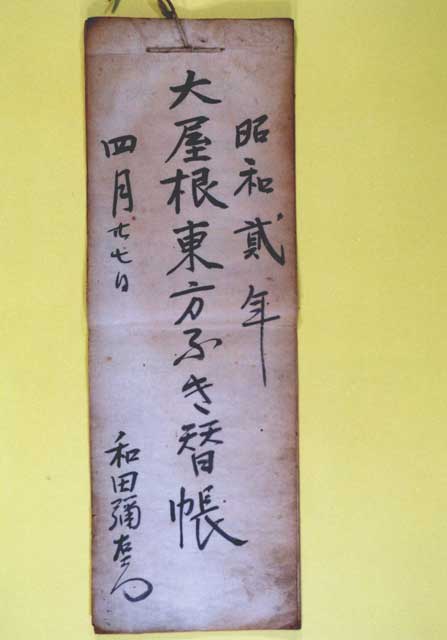 昭和貳年
大屋根東方ふき替帳
四月廿七日
和田彌左衛門